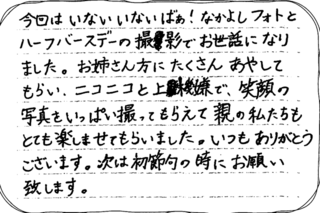 今回は いない いない ばぁ！なかよし フォトと
ハーフバースデーの 撮影で お世話に なり
ました。お姉さん方に たくさん あやして
もらい、ニコニコと上機嫌で、笑顔の
写真を いっぱい 撮って もらえて 親の 私たちも
とても 楽しませて もらいました。いつも ありがとう
ございます。次は 初節句の 時に お願い
致します。